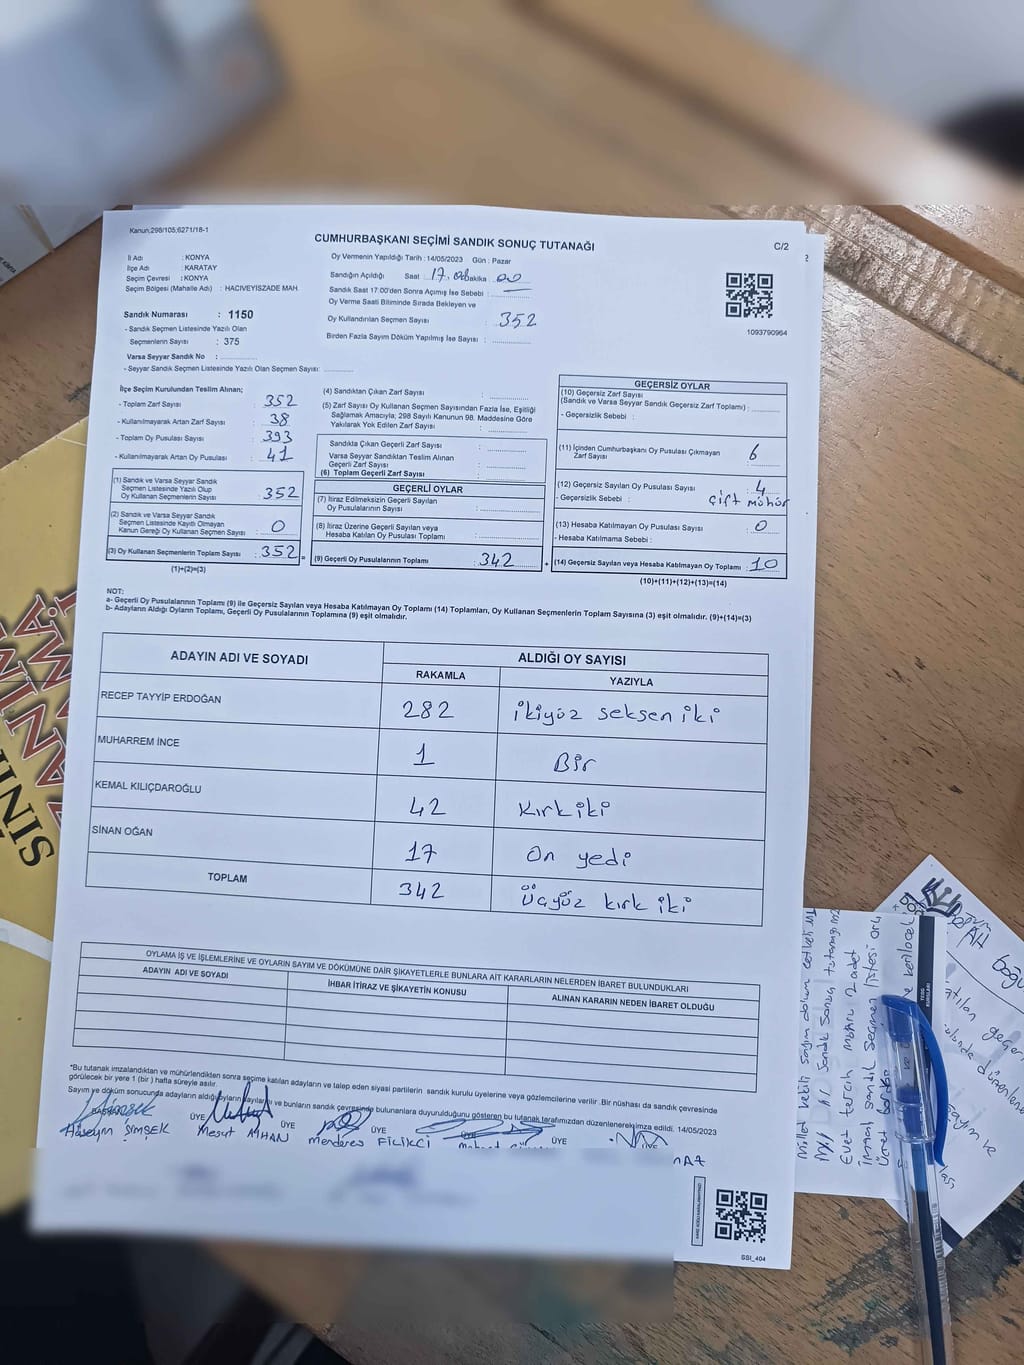 Kanun;298/105;6271/18-1
CUMHURBAŞKANI SEÇİMİ SANDIK SONUÇ TUTANAĞI
C/2
İl Adı : KONYA
İlçe Adı : KARATAY
Seçim Çevresi : KONYA
Seçim Bölgesi (Mahalle Adı) : HACIVEYISZADE MAH.
Oy Vermenin Yapıldığı Tarih : 14/05/2023 Gün : Pazar
Sandığın Açıldığı Saat 17.00 Dakika 00
Sandık Saat 17:00'den Sonra Açımış İse Sebebi :
Oy Verme Saati Bitiminde Sırada Bekleyen ve
Oy Kullandırılan Seçmen Sayısı : 352
Birden Fazla Sayım Döküm Yapılmış İse Sayısı :
1093790964
Sandık Numarası : 1150
- Sandık Seçmen Listesinde Yazılı Olan
Seçmenlerin Sayısı : 375
Varsa Seyyar Sandık No :
- Seyyar Sandık Seçmen Listesinde Yazılı Olan Seçmen Sayısı:
İlçe Seçim Kurulundan Teslim Alınan;
- Toplam Zarf Sayısı : 352
- Kullanılmayarak Artan Zarf Sayısı : 38
- Toplam Oy Pusulası Sayısı : 393
- Kullanılmayarak Artan Oy Pusulası : 41
(1) Sandık ve Varsa Seyyar Sandık
Seçmen Listesinde Yazılı Olup
Oy Kullanan Seçmenlerin Sayısı : 352
(2) Sandık ve Varsa Seyyar Sandık
Seçmen Listesinde Kayıtlı Olmayan
Kanun Gereği Oy Kullanan Seçmen Sayısı : 0
(3) Oy Kullanan Seçmenlerin Toplam Sayısı : 352 =
(1)+(2)=(3)
(4) Sandıktan Çıkan Zarf Sayısı :
(5) Zarf Sayısı Oy Kullanan Seçmen Sayısından Fazla İse, Eşitliği
Sağlamak Amacıyla; 298 Sayılı Kanunun 98. Maddesine Göre
Yakılarak Yok Edilen Zarf Sayısı :
Sandıkta Çıkan Geçerli Zarf Sayısı :
Varsa Seyyar Sandıktan Teslim Alınan
Geçerli Zarf Sayısı :
(6) Toplam Geçerli Zarf Sayısı :
GEÇERLİ OYLAR
(7) İtiraz Edilmeksizin Geçerli Sayılan
Oy Pusulalarının Sayısı :
(8) İtiraz Üzerine Geçerli Sayılan veya
Hesaba Katılan Oy Pusulası Toplamı :
(9) Geçerli Oy Pusulalarının Toplamı : 342 +
GEÇERSİZ OYLAR
(10) Geçersiz Zarf Sayısı
(Sandık ve Varsa Seyyar Sandık Geçersiz Zarf Toplamı) :
- Geçersizlik Sebebi :
(11) İçinden Cumhurbaşkanı Oy Pusulası Çıkmayan
Zarf Sayısı : 6
(12) Geçersiz Sayılan Oy Pusulası Sayısı : 4
- Geçersizlik Sebebi : Çift mühür
(13) Hesaba Katılmayan Oy Pusulası Sayısı : 0
- Hesaba Katılmama Sebebi :
(14) Geçersiz Sayılan veya Hesaba Katılmayan Oy Toplamı : 10
(10)+(11)+(12)+(13)=(14)
NOT:
a- Geçerli Oy Pusulalarının Toplamı (9) ile Geçersiz Sayılan veya Hesaba Katılmayan Oy Toplamı (14) Toplamları, Oy Kullanan Seçmenlerin Toplam Sayısına (3) eşit olmalıdır. (9)+(14)=(3)
b- Adayların Aldığı Oyların Toplamı, Geçerli Oy Pusulalarının Toplamına (9) eşit olmalıdır.
ADAYIN ADI VE SOYADI
ALDIĞI OY SAYISI
RAKAMLA YAZIYLA
RECEP TAYYİP ERDOĞAN 282 ikiyüz seksen iki
MUHARREM İNCE 1 Bir
KEMAL KILIÇDAROĞLU 42 Kırk iki
SİNAN OĞAN 17 On yedi
TOPLAM 342 Üçyüz kırk iki
OYLAMA İŞ VE İŞLEMLERİNE VE OYLARIN SAYIM VE DÖKÜMÜNE DAİR ŞİKAYETLERLE BUNLARA AİT KARARLARIN NELERDEN İBARET BULUNDUKLARI
ADAYIN ADI VE SOYADI
İHBAR İTİRAZ VE ŞİKAYETİN KONUSU
ALINAN KARARIN NEDEN İBARET OLDUĞU
*Bu tutanak imzalandıktan ve mühürlendikten sonra seçime katılan adayların ve talep eden siyasi partilerin sandık kurulu üyelerine veya gözlemcilerine verilir. Bir nüshası da sandık çevresinde
görülecek bir yere 1 (bir) hafta süreyle asılır.
Sayım ve döküm sonucunda adayların aldığı oyların sayıları ve bunların sandık çevresinde bulunanlara duyurulduğunu gösteren bu tutanak tarafımızdan düzenlenerek imza edildi. 14/05/2023
BAŞKAN ÜYE ÜYE ÜYE ÜYE ÜYE
Hüseyin ŞİMŞEK Mesut AYHAN Menderes FİLİKCİ
SSI_404
Evet tercih mührü 2 adet